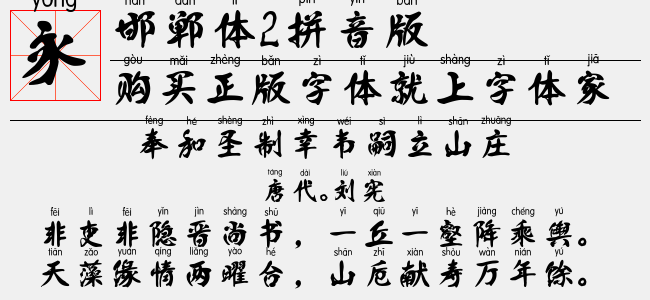 yǒng
永
邯郸体2拼音版
gòu mǎi zhèng bǎn zì tǐ jiù shàng zì tǐ jiā
购买正版字体就上字体家
fèng hé shèng zhì xìng wéi sì lì shān zhuāng
奉和圣制幸韦嗣立山庄
táng dài liú xiàn
唐代。刘宪
fēi lì fēi yǐn jìn shàng shū yī qiū yī hè jiàng chéng yú
非吏非隐晋尚书，一丘一壑降乘舆。
tiān zǎo yuán qíng liǎng yào hé shān zhī xiàn shòu wàn nián yú
天藻缘情两曜合，山卮献寿万年馀。